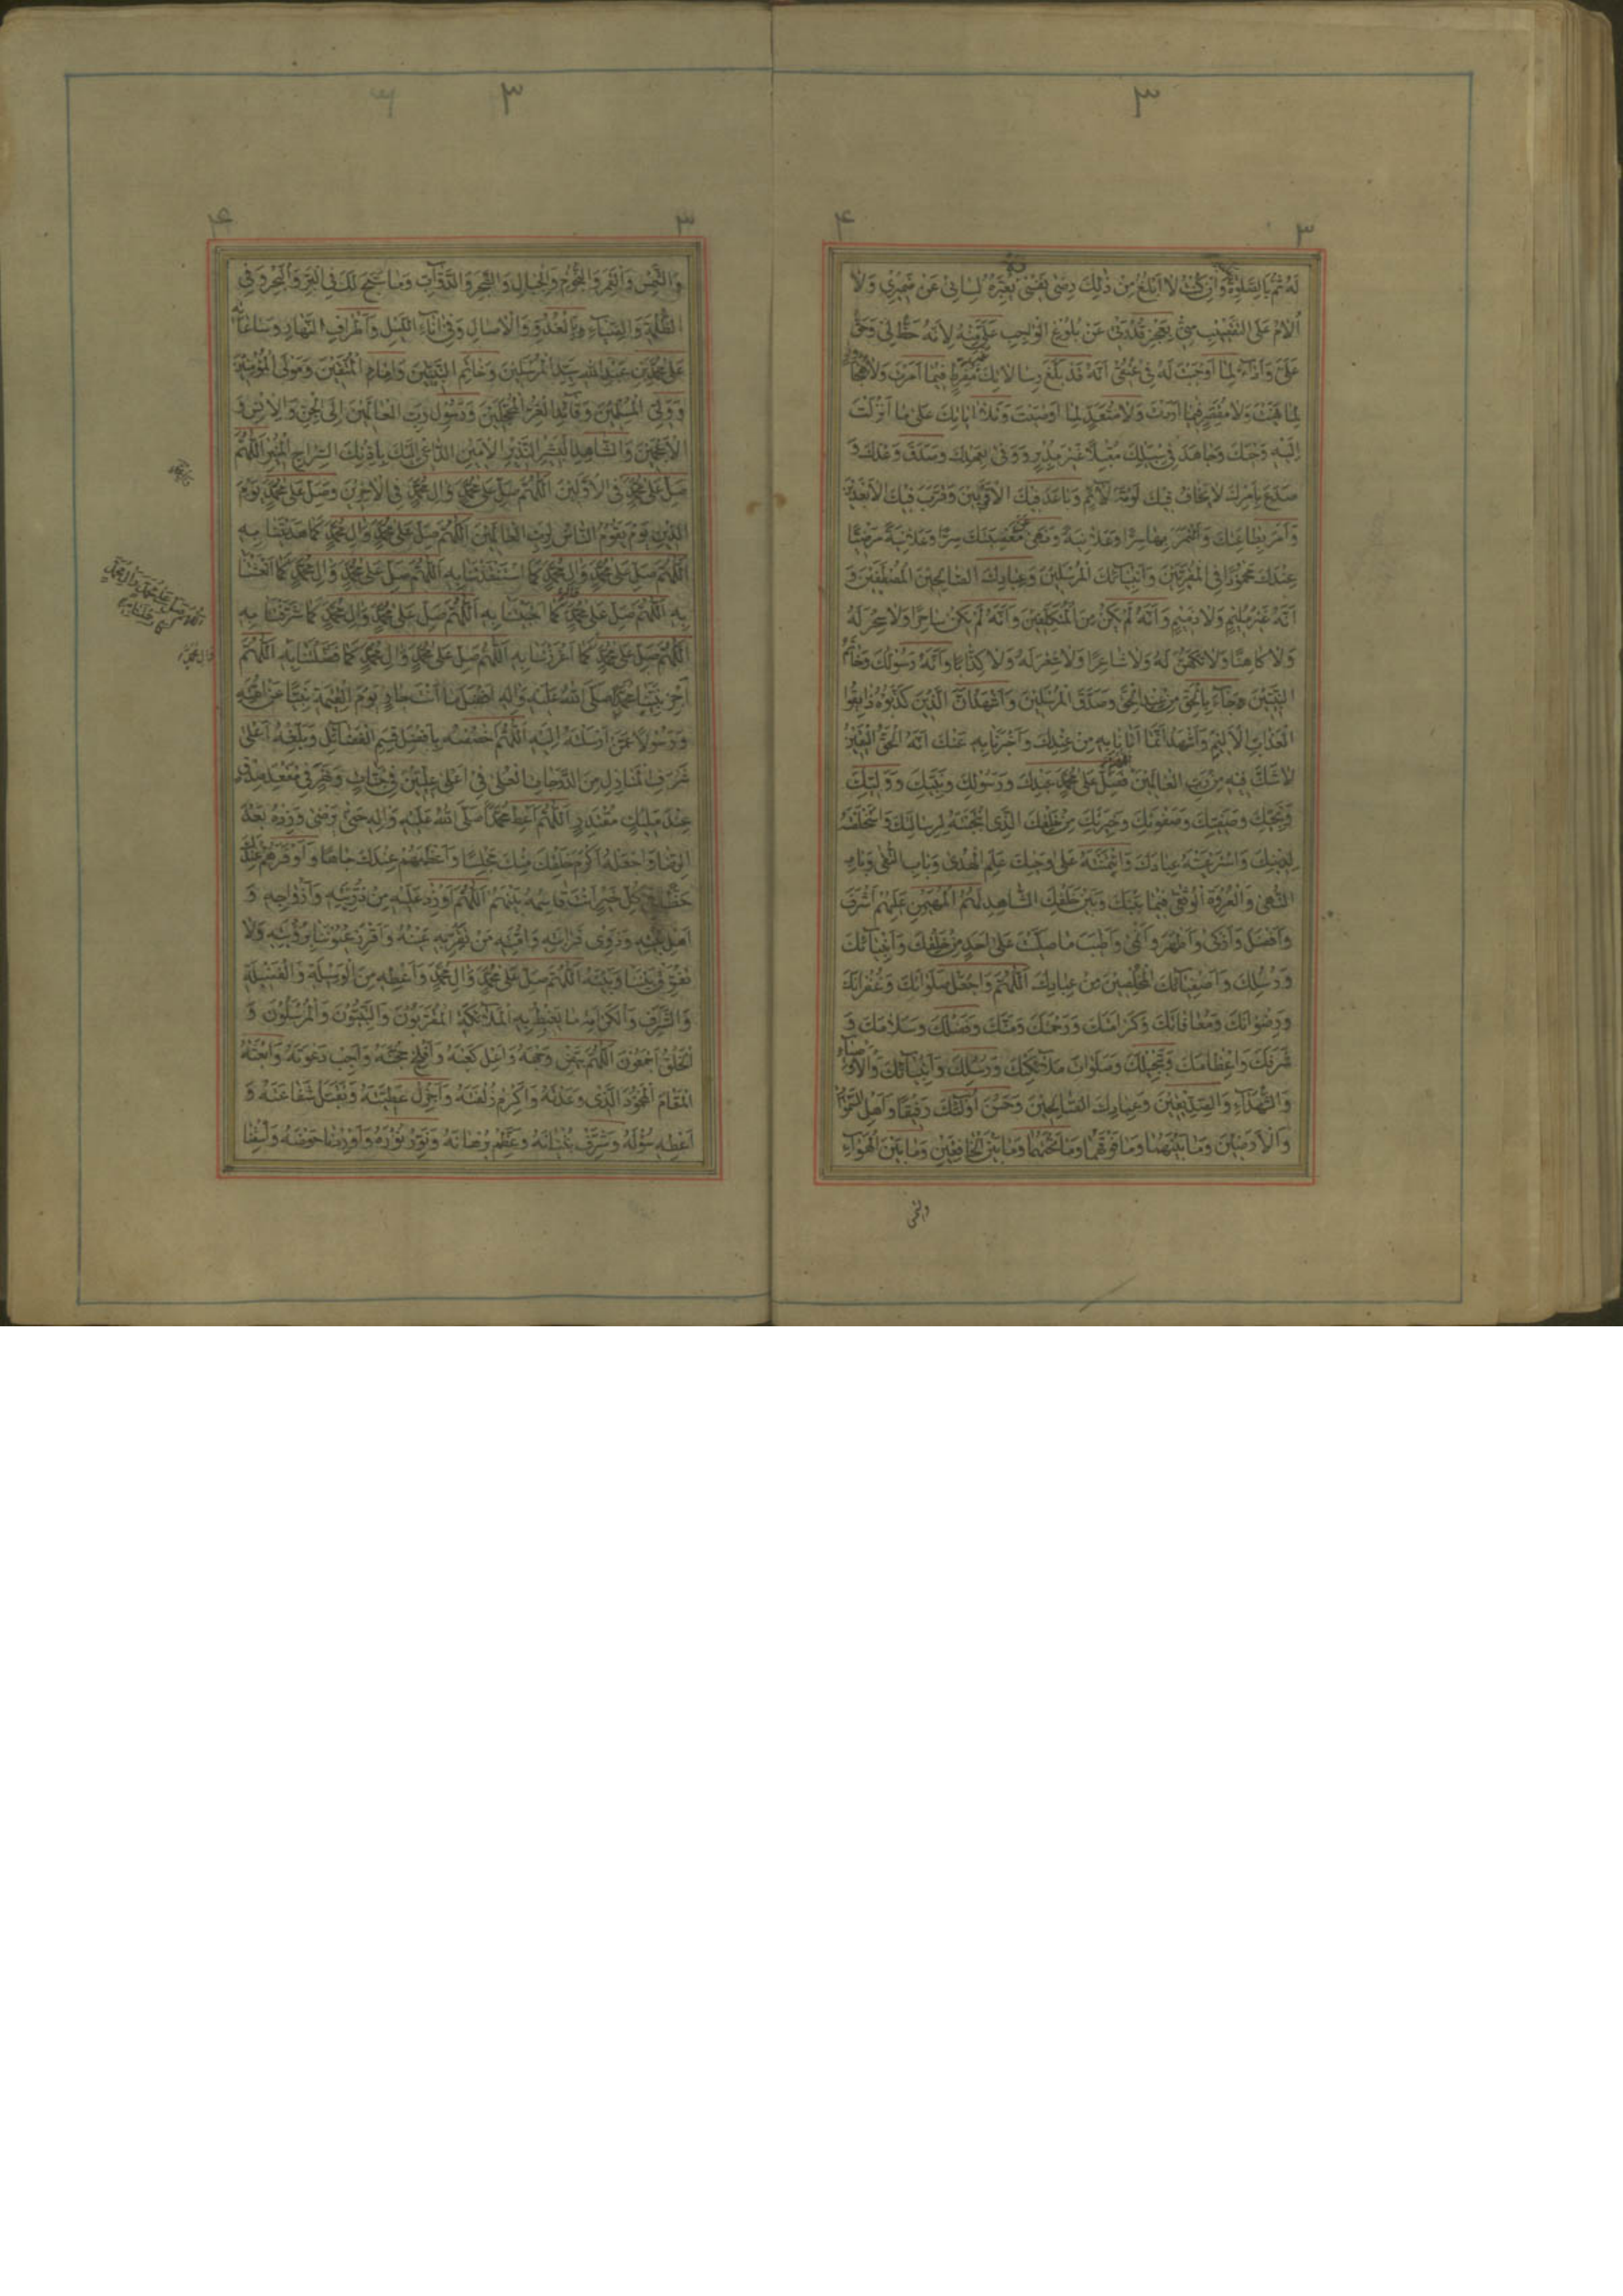 ٣
٣ ۴
لَهُ ثُمَّ بِالصَّلوٰةِ وَاِنْ كُنْتُ لا اَبْلُغُ مِنْ ذٰلِكَ رِضىٰ نَفْسى يُعَبِّرُهُ لِسانى عَنْ ضَميرى وَلا
اُلامُ عَلَى التَّقْصيرِ مِنّى بِعَجْزِ قُدْرَتى عَنْ بُلُوغِ الْواجِبِ عَلَىَّ مِنْهُ لِاَنَّهُ حَظٌّ لى وَحَقٌّ
عَلَىَّ وَاَداءٌ لِما اَوْجَبْتَ لَهُ فى عُنُقى اَنَّهُ قَدْ بَلَّغَ رِسالاتِكَ غَيْرَ مُفَرِّطٍ فيما اَمَرْتَ وَلا مُجاوِزاً
لِما نَهَيْتَ وَلا مُقَصِّرٍ فيما اَرَدْتَ وَلا مُتَعَدٍّ لِما اَوْصَيْتَ وَتَلا اٰياتِكَ عَلىٰ ما اَنْزَلْتَ
اِلَيْهِ وَحْيَكَ وَجاهَدَ فى سَبيلِكَ مُقْبِلاً غَيْرَ مُدْبِرٍ وَوَفىٰ بِعَهْدِكَ وَصَدَّقَ وَعْدَكَ وَ
صَدَعَ بِاَمْرِكَ لا يَخافُ فيكَ لَوْمَةَ لائِمٍ وَباعَدَ فيكَ الْاَقْرَبينَ وَقَرَّبَ فيكَ الْاَبْعَدينَ
وَاَمَرَ بِطاعَتِكَ وَائْتَمَرَ بِها سِرّاً وَعَلانِيَةً وَنَهىٰ عَنْ مَعْصِيَتِكَ سِرّاً وَعَلانِيَةً مَرْضِيّاً
عِنْدَكَ مَحْمُوداً فِى الْمُقَرَّبينَ وَاَنْبِيائِكَ الْمُرْسَلينَ وَعِبادِكَ الصّالِحينَ الْمُصْطَفَيْنَ وَ
اَنَّهُ غَيْرُ مُليمٍ وَلا ذَميمٍ وَاَنَّهُ لَمْ يَكُنْ مِنَ الْمُتَكَلِّفينَ وَاَنَّهُ لَمْ يَكُنْ ساحِراً وَلا سُحِرَ لَهُ
وَلا كاهِناً وَلا تُكُهِّنَ لَهُ وَلا شاعِراً وَلا شُعِرَ لَهُ وَلا كَذّاباً وَاَنَّهُ رَسُولُكَ وَخاتَمُ
النَّبِيّينَ جاءَ بِالْحَقِّ مِنْ عِنْدِ الْحَقِّ وَصَدَّقَ الْمُرْسَلينَ وَاَشْهَدُ اَنَّ الَّذينَ كَذَّبُوهُ ذائِقُوا
الْعَذابِ الْاَليمِ وَاَشْهَدُ اَنَّ ما اَتانا بِهِ مِنْ عِنْدِكَ وَاَخْبَرَنا بِهِ عَنْكَ اَنَّهُ الْحَقُّ الْيَقينُ
لا شَكَّ فيهِ مِنْ رَبِّ الْعالَمينَ فَصَلِّ عَلىٰ مُحَمَّدٍ عَبْدِكَ وَرَسُولِكَ وَنَبِيِّكَ وَوَلِيِّكَ
وَنَجِيِّكَ وَصَفِيِّكَ وَصَفْوَتِكَ وَخِيَرَتِكَ مِنْ خَلْقِكَ الَّذى انْتَجَبْتَهُ لِرِسالاتِكَ وَاسْتَخْلَصْتَهُ
لِدينِكَ وَاسْتَرْعَيْتَهُ عِبادَكَ وَائْتَمَنْتَهُ عَلىٰ وَحْيِكَ عَلَمِ الْهُدىٰ وَبابِ التُّقىٰ وَ
النُّهىٰ وَالْعُرْوَةِ الْوُثْقىٰ فيما بَيْنَكَ وَبَيْنَ خَلْقِكَ الشّاهِدِ لَهُمْ الْمُهَيْمِنِ عَلَيْهِمْ اَشْرَفَ
وَاَفْضَلَ وَاَزْكىٰ وَاَطْهَرَ وَاَنْمىٰ وَاَطْيَبَ ما صَلَّيْتَ عَلىٰ اَحَدٍ مِنْ خَلْقِكَ وَاَنْبِيائِكَ
وَرُسُلِكَ وَاَصْفِيائِكَ الْمُخْلَصينَ مِنْ عِبادِكَ اَللّٰهُمَّ وَاجْعَلْ صَلَواتِكَ وَغُفْرانَكَ
وَرِضْوانَكَ وَمُعافاتَكَ وَكَرامَتَكَ وَرَحْمَتَكَ وَمَنَّكَ وَفَضْلَكَ وَسَلامَكَ وَ
شَرَفَكَ وَاِعْظامَكَ وَتَبْجيلَكَ وَصَلَواتِ مَلائِكَتِكَ وَرُسُلِكَ وَاَنْبِيائِكَ وَالْاَوْصِياءِ
وَالشُّهَداءِ وَالصِّدّيقينَ وَعِبادِكَ الصّالِحينَ وَحَسُنَ اُولٰئِكَ رَفيقاً وَاَهْلِ السَّمٰواتِ
وَالْاَرَضينَ وَما بَيْنَهُما وَما فَوْقَهُما وَما تَحْتَهُما وَما بَيْنَ الْخافِقَيْنِ وَما بَيْنَ الْهَواءِ
والشمس
٣
٣ ۴
وَالشَّمْسِ وَالْقَمَرِ وَالنُّجُومِ وَالْجِبالِ وَالشَّجَرِ وَالدَّوابِّ وَما سَبَّحَ لَكَ فِى الْبَرِّ وَالْبَحْرِ وَفِى
الظُّلْمَةِ وَالضِّياءِ بِالْغُدُوِّ وَالْاٰصالِ وَفى اٰناءِ اللَّيْلِ وَاَطْرافِ النَّهارِ وَساعاتِهِ
عَلىٰ مُحَمَّدِ بْنِ عَبْدِ اللهِ سَيِّدِ الْمُرْسَلينَ وَخاتَمِ النَّبِيّينَ وَاِمامِ الْمُتَّقينَ وَمَوْلَى الْمُؤْمِنينَ
وَوَلِىِّ الْمُسْلِمينَ وَقائِدِ الْغُرِّ الْمُحَجَّلينَ وَرَسُولِ رَبِّ الْعالَمينَ اِلَى الْجِنِّ وَالْاِنْسِ وَ
الْاَعْجَمينَ وَالشّاهِدِ الْبَشيرِ النَّذيرِ الْاَمينِ الدّاعى اِلَيْكَ بِاِذْنِكَ السِّراجِ الْمُنيرِ اَللّٰهُمَّ
صَلِّ عَلىٰ مُحَمَّدٍ فِى الْاَوَّلينَ اَللّٰهُمَّ صَلِّ عَلىٰ مُحَمَّدٍ وَاٰلِ مُحَمَّدٍ فِى الْاٰخِرينَ وَصَلِّ عَلىٰ مُحَمَّدٍ يَوْمَ
الدّينِ يَوْمَ يَقُومُ النّاسُ لِرَبِّ الْعالَمينَ اَللّٰهُمَّ صَلِّ عَلىٰ مُحَمَّدٍ وَاٰلِ مُحَمَّدٍ كَما هَدَيْتَنا بِهِ
اَللّٰهُمَّ صَلِّ عَلىٰ مُحَمَّدٍ وَاٰلِ مُحَمَّدٍ كَما اسْتَنْقَذْتَنا بِهِ اَللّٰهُمَّ صَلِّ عَلىٰ مُحَمَّدٍ وَاٰلِ مُحَمَّدٍ كَما اَنْعَشْتَنا
بِهِ اَللّٰهُمَّ صَلِّ عَلىٰ مُحَمَّدٍ كَما اَحْيَيْتَنا بِهِ اَللّٰهُمَّ صَلِّ عَلىٰ مُحَمَّدٍ وَاٰلِ مُحَمَّدٍ كَما شَرَّفْتَنا بِهِ
اَللّٰهُمَّ صَلِّ عَلىٰ مُحَمَّدٍ كَما اَعْزَزْتَنا بِهِ اَللّٰهُمَّ صَلِّ عَلىٰ مُحَمَّدٍ وَاٰلِ مُحَمَّدٍ كَما فَضَّلْتَنا بِهِ اَللّٰهُمَّ
اَجْزِ نَبِيَّنا مُحَمَّداً صَلَّى اللهُ عَلَيْهِ وَاٰلِهِ اَفْضَلَ ما اَنْتَ جازٍ يَوْمَ الْقِيٰمَةِ نَبِيّاً عَنْ اُمَّتِهِ
وَرَسُولاً عَمَّنْ اَرْسَلْتَهُ اِلَيْهِ اَللّٰهُمَّ اخْصُصْهُ بِاَفْضَلِ قِسَمِ الْفَضائِلِ وَبَلِّغْهُ اَعْلىٰ
شَرَفِ الْمَنازِلِ مِنَ الدَّرَجاتِ الْعُلىٰ فى اَعْلىٰ عِلِّيّينَ فى جَنّاتٍ وَنَهَرٍ فى مَقْعَدِ صِدْقٍ
عِنْدَ مَليكٍ مُقْتَدِرٍ اَللّٰهُمَّ اَعْطِ مُحَمَّداً صَلَّى اللهُ عَلَيْهِ وَاٰلِهِ حَتّىٰ تَرْضىٰ وَزِدْهُ بَعْدَ
الرِّضا وَاجْعَلْهُ اَكْرَمَ خَلْقِكَ مِنْكَ مَجْلِساً وَاَعْظَمَهُمْ عِنْدَكَ جاهاً وَاَوْفَرَهُمْ عِنْدَكَ
حَظّاً فى كُلِّ خَيْرٍ اَنْتَ قاسِمُهُ بَيْنَهُمْ اَللّٰهُمَّ اَوْرِدْ عَلَيْهِ مِنْ ذُرِّيَّتِهِ وَاَزْواجِهِ وَ
اَهْلِ بَيْتِهِ وَذَوى قَرابَتِهِ وَاُمَّتِهِ مَنْ تُقِرُّ بِهِ عَيْنَهُ وَاَقْرِرْ عُيُونَنا بِرُؤْيَتِهِ وَلا
تُفَرِّقْ بَيْنَنا وَبَيْنَهُ اَللّٰهُمَّ صَلِّ عَلىٰ مُحَمَّدٍ وَاٰلِ مُحَمَّدٍ وَاَعْطِهِ مِنَ الْوَسيلَةِ وَالْفَضيلَةِ
وَالشَّرَفِ وَالْكَرامَةِ ما يَغْبِطُ بِهِ الْمَلائِكَةُ الْمُقَرَّبُونَ وَالنَّبِيُّونَ وَالْمُرْسَلُونَ وَ
الْخَلْقُ اَجْمَعُونَ اَللّٰهُمَّ بَيِّضْ وَجْهَهُ وَاَعْلِ كَعْبَهُ وَاَفْلِجْ حُجَّتَهُ وَاَجِبْ دَعْوَتَهُ وَابْعَثْهُ
الْمَقامَ الْمَحْمُودَ الَّذى وَعَدْتَهُ وَاَكْرِمْ زُلْفَتَهُ وَاَجْزِلْ عَطِيَّتَهُ وَتَقَبَّلْ شَفاعَتَهُ وَ
اَعْطِهِ سُؤْلَهُ وَشَرِّفْ بُنْيانَهُ وَعَظِّمْ بُرْهانَهُ وَنَوِّرْ نُورَهُ وَاَوْرِدْنا حَوْضَهُ وَاسْقِنا
اللهم صل على محمد وال محمد
وال محمد